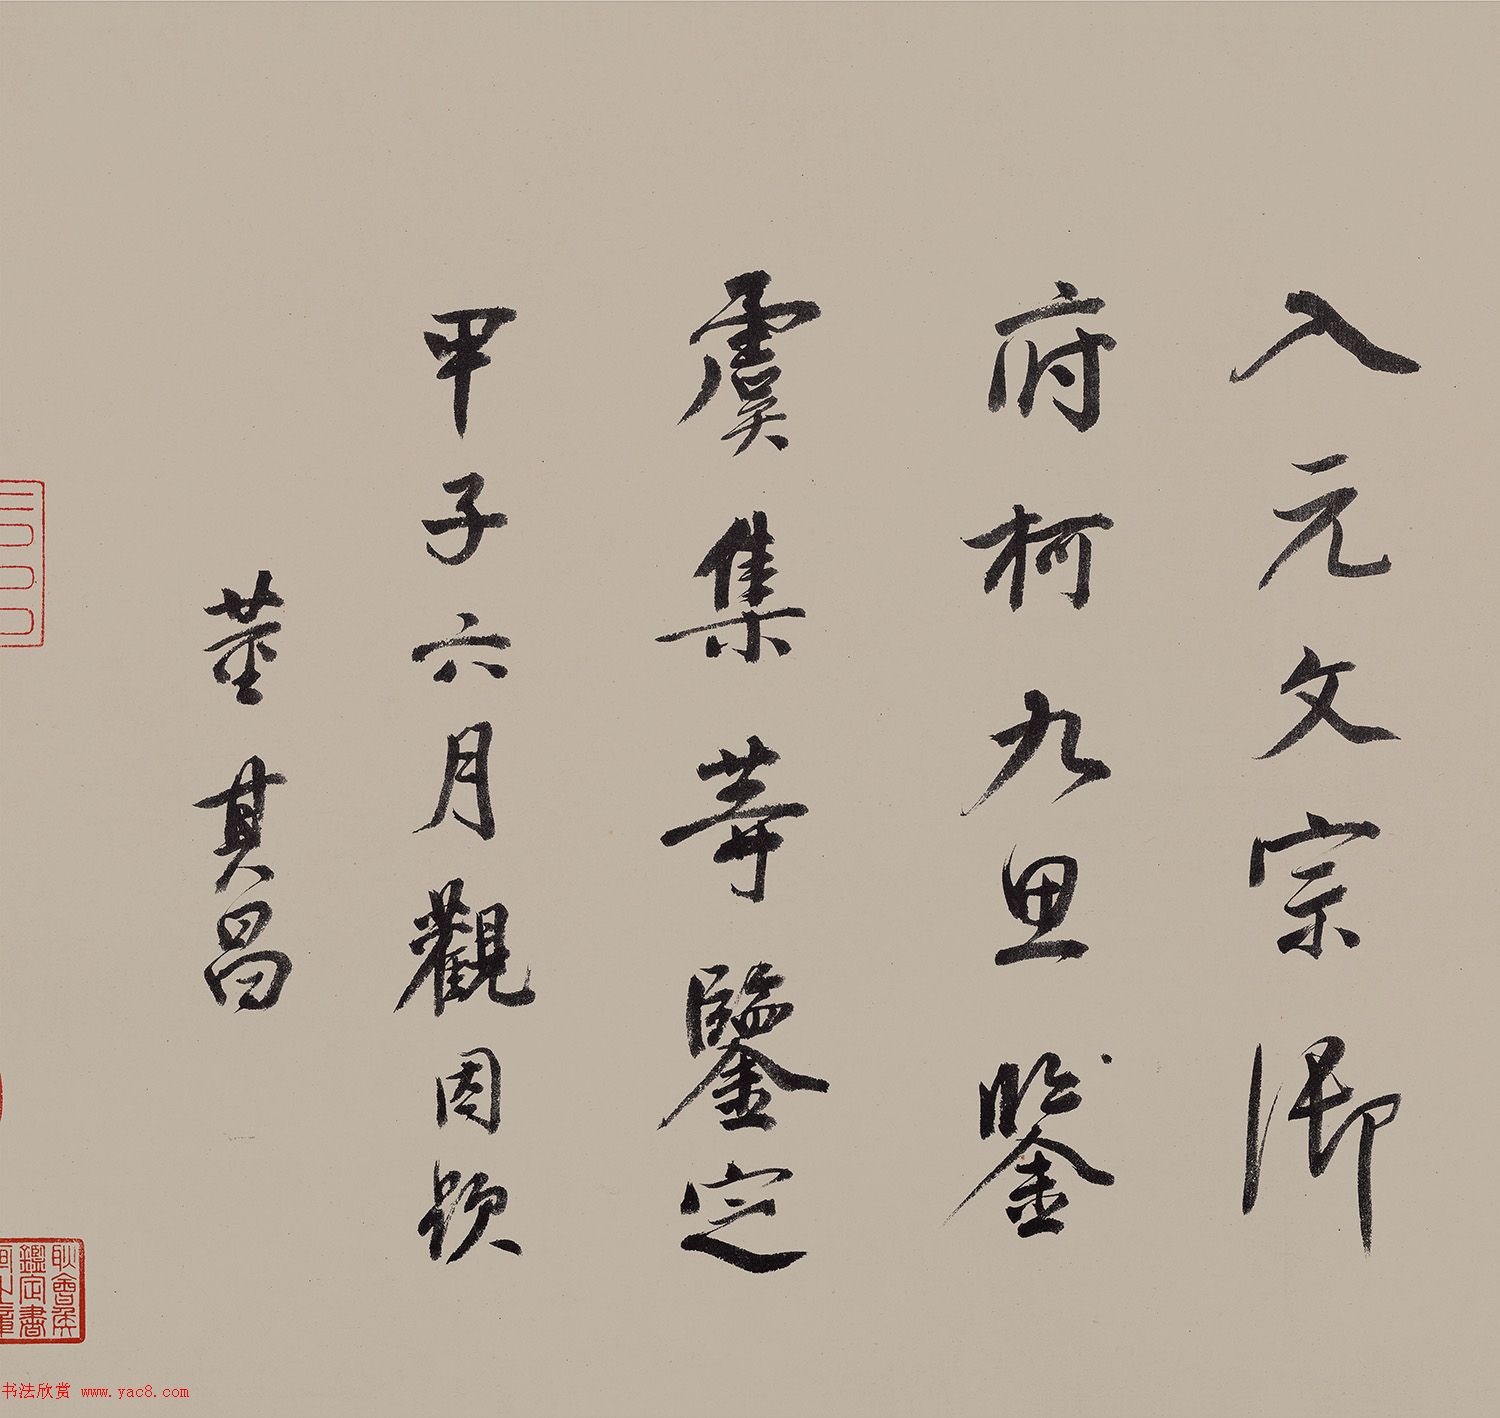 入元文宗御
府柯九思鑒
虞集等鑒定
甲子六月觀因題
董其昌
耿會侯
鑑定書
书法欣赏 www.yac8.com